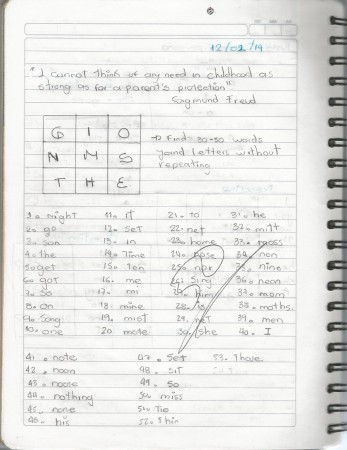 12/02/19
"I cannot think of any need in childhood as
strong as for a parent's protection"
Sagmund Freud
G I O
N M S
T H E
→ Find 30-50 words
joined letters without
repeating
1. might 11. it 21. to 31. he
2. go 12. set 22. net 32. mitt
3. son 13. in 23. home 33. moss
4. the 14. Time 24. nose 34. non
5. get 15. Ten 25. not 35. nine
6. got 16. me 26. Sing 36. neon
7. so 17. mi 27. him 37. mom
8. on 18. mine 28. is 38. moths.
9. song 19. mist 29. net 39. men
10. one 20. mote 30. she 40. I
41. note 47. Set 53. Those
42. noon 48. Sit
43. noose 49. So
44. nothing 50. miss
45. none 51. Tie
46. his 52. Thin